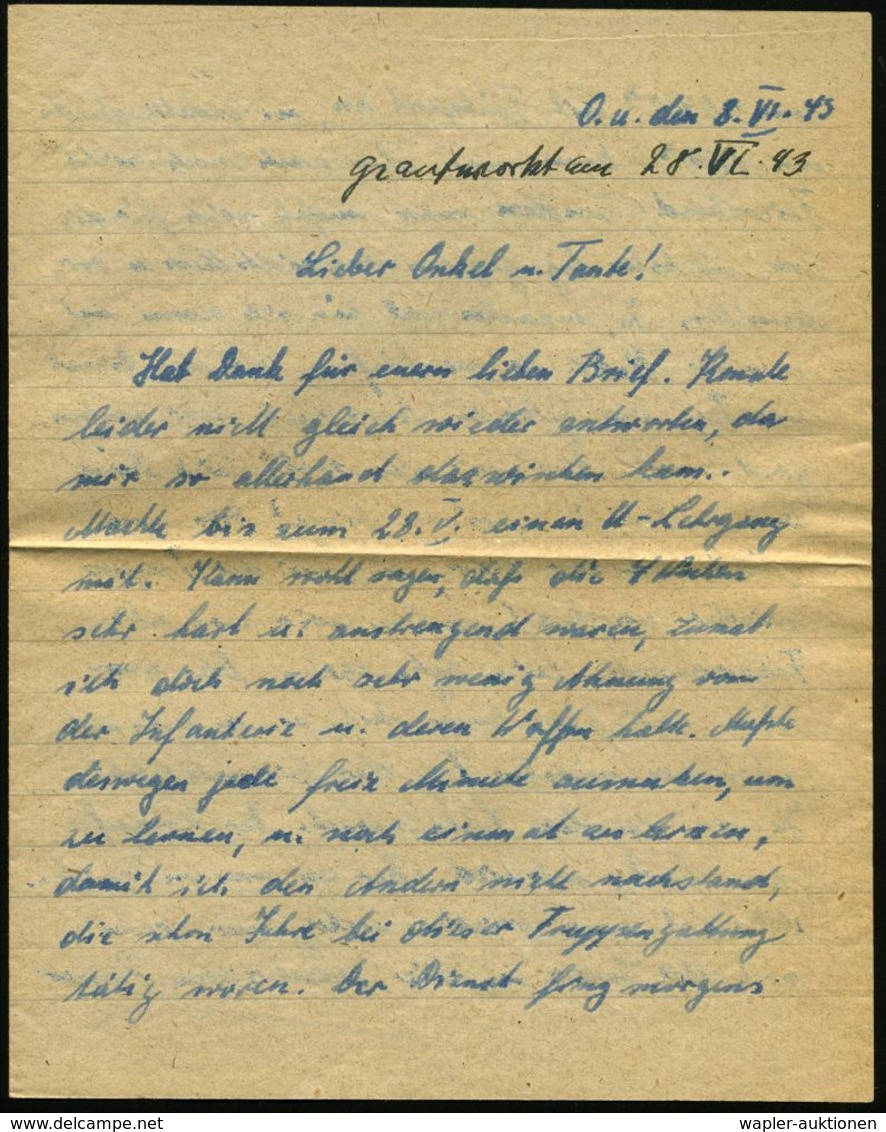 O.u. den 8. VI. 43
geantwortet am 28. VI. 43
Lieber Onkel u. Tante!
Hat Dank für euern lieben Brief. Konnte
leider nicht gleich wieder entworten, da
mir so allerhand dazwischen kam.
Machte bis zum 28. V. einen U-Lehrgang
mit. Kann wohl sagen, daß die 4 Wochen
sehr hart u. anstrengend waren, zumal
ich doch noch sehr wenig Ahnung von
der Infanterie u. deren Waffen hatte. Mußte
deswegen jede freie Minute ausnutzen, um
zu lernen, u. noch einmal zu lernen,
damit ich den Andern nicht nachstand,
die schon Jahre bei dieser Truppengattung
tätig waren. Der Dienst fing morgens
wapler-auktionen